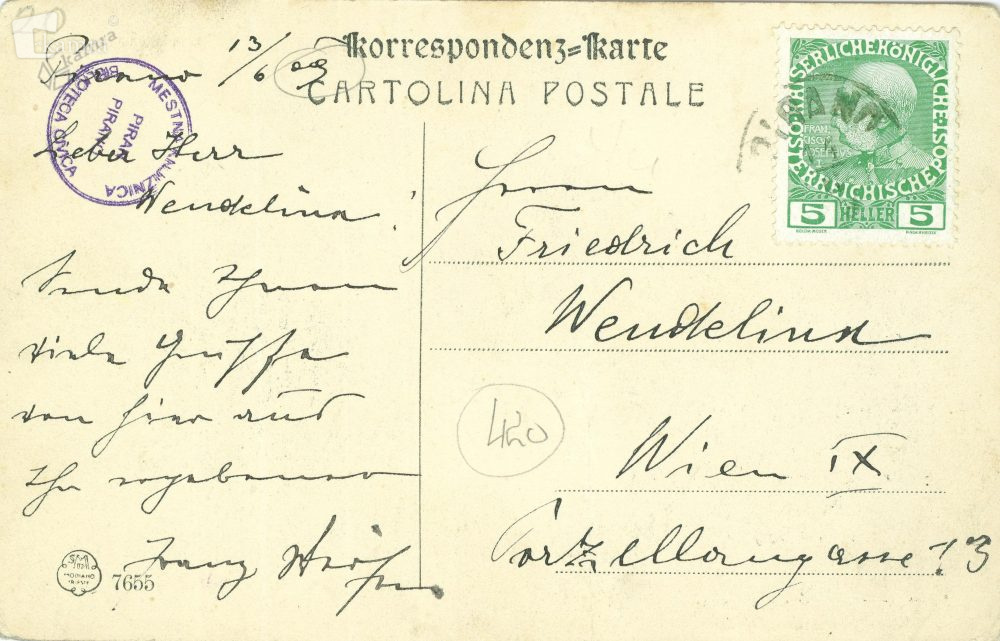 kamra
Pirano 13/6 09
Korrespondenz=Karte
CARTOLINA POSTALE
MESTNA KNJIŽNICA
PIRAN
PIRANO
BIBLIOTECA CIVICA
KAISERLICHE KÖNIGLICHE
ÖSTERREICHISCHE POST
5 HELLER 5
PIRANO
Lieber Herr
Wendelina!
Sende Ihnen
viele Grüsse
von hier aus
Ihr ergebener
Franz
7655
Herrn
Friedrich
Wendelina
420
Wien IX
Porzellangasse 13